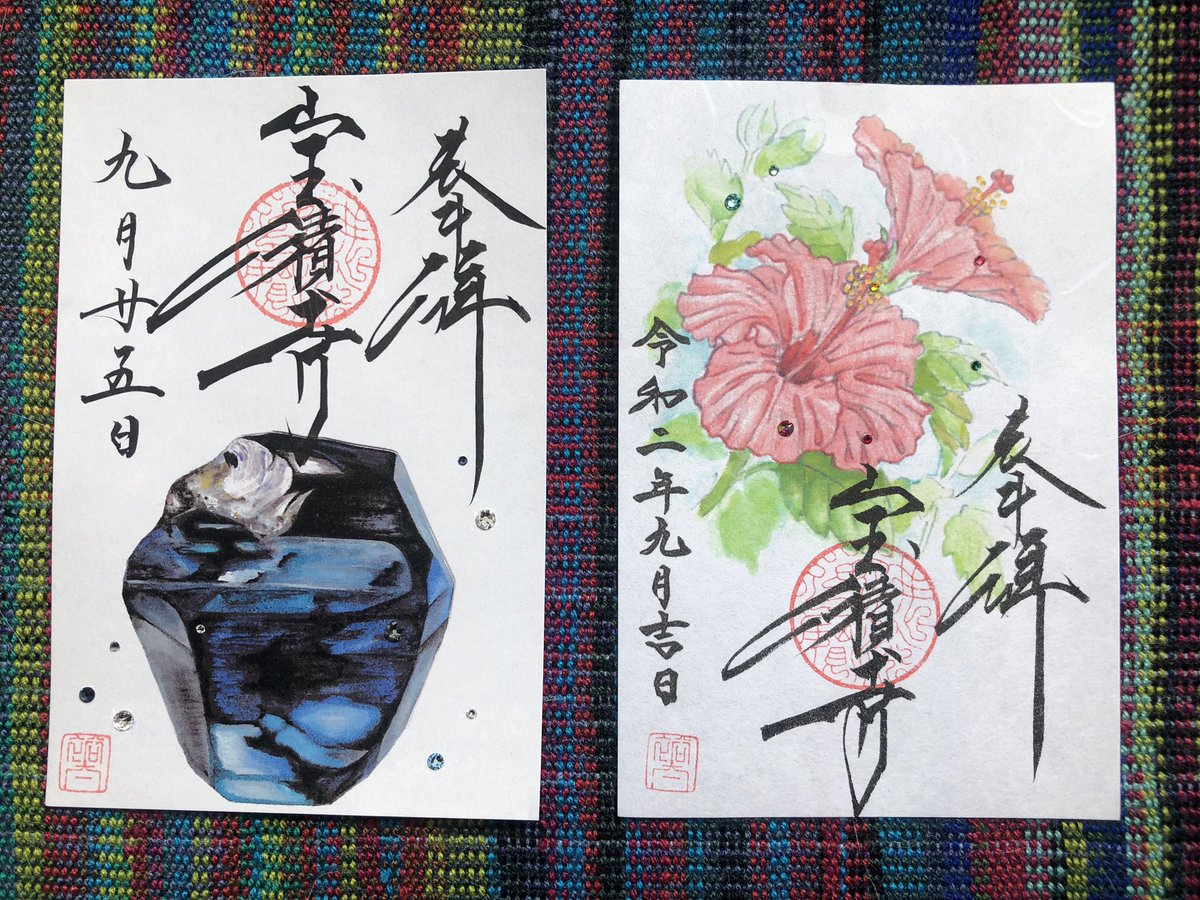 奉拝
宝積寺
九月廿五日
奉拝
宝積寺
令和二年九月吉日